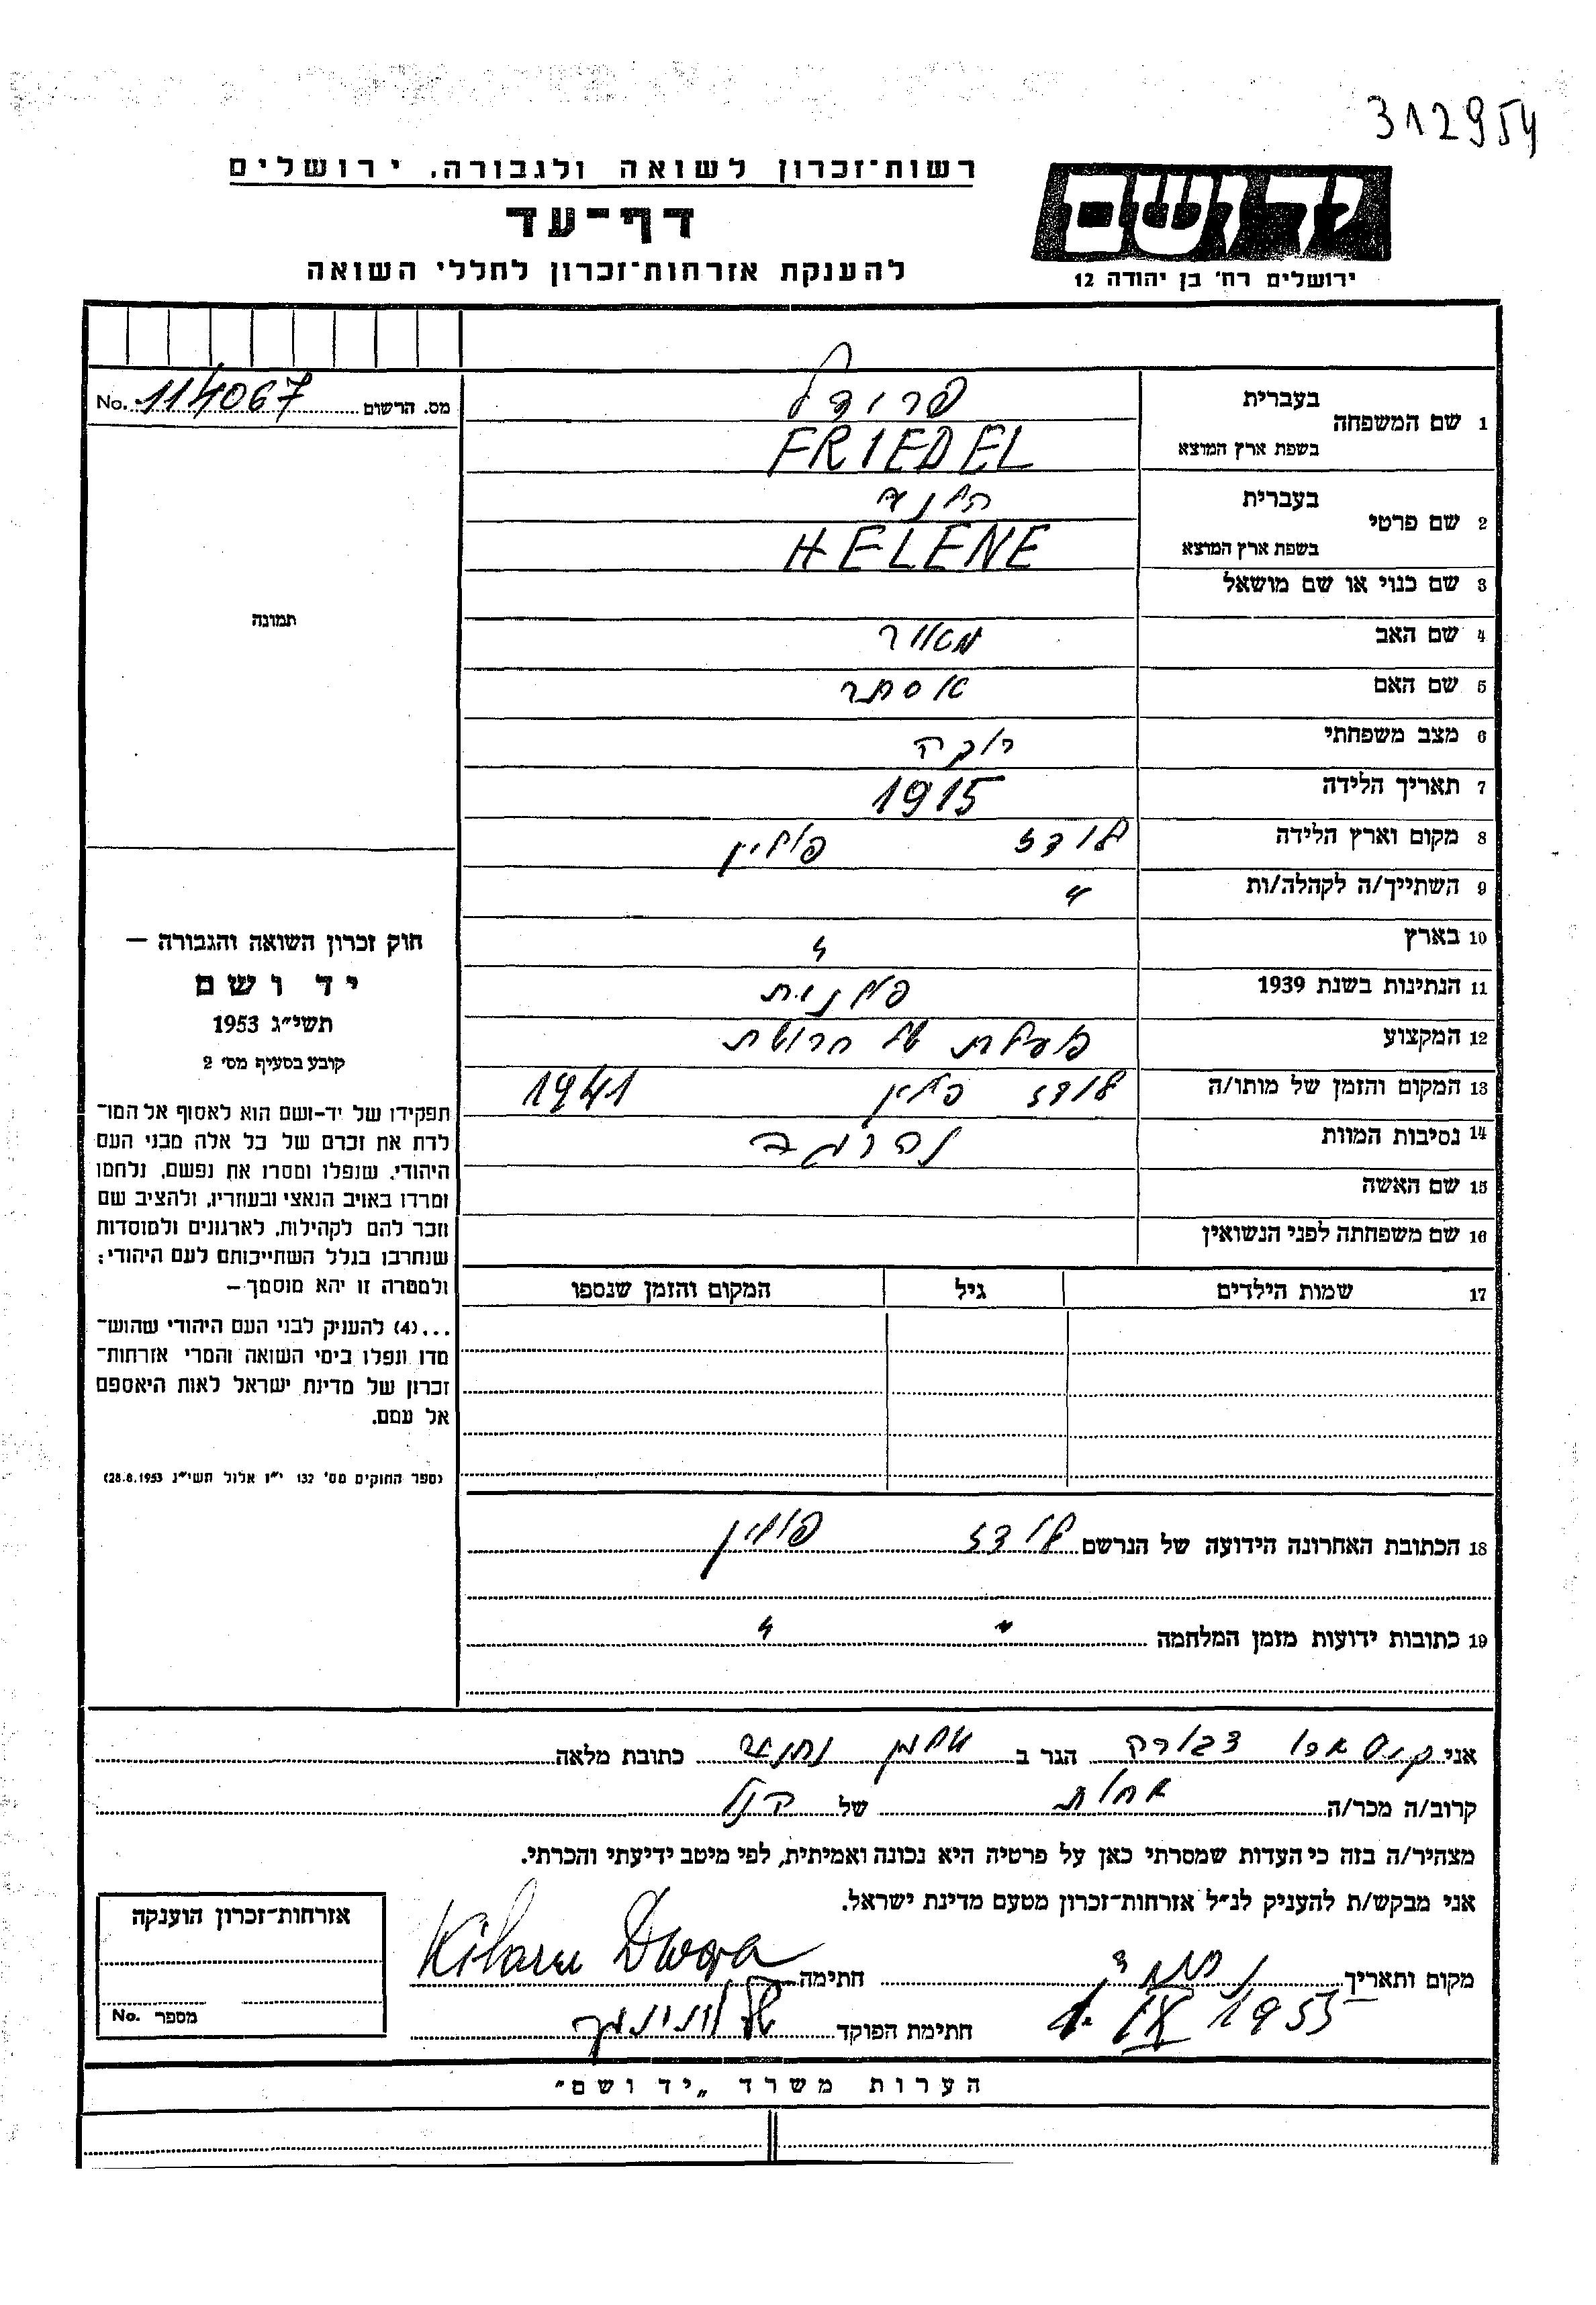 312954
רשות־זכרון לשואה ולגבורה. ירושלים
דף־עד
להענקת אזרחות־זכרון לחללי השואה
יד ושם
ירושלים רח' בן יהודה 12
מס. הרשום 114067 No.
1 שם המשפחה בעברית פרידל
בשפת ארץ המוצא FRIEDEL
2 שם פרטי בעברית הלנה
בשפת ארץ המוצא HELENE
3 שם כנוי או שם מושאל
4 שם האב מאיר
5 שם האם אסתר
6 מצב משפחתי רוקה
7 תאריך הלידה 1915
8 מקום וארץ הלידה לודז פולין
9 השתייך/ה לקהלה/ות "
10 בארץ "
11 הנתינות בשנת 1939 פולנית
12 המקצוע פועלת של חרושת
13 המקום והזמן של מותו/ה לודז פולין 1941
14 נסיבות המוות נהרגה
15 שם האשה
16 שם משפחתה לפני הנשואין
17 שמות הילדים גיל המקום והזמן שנספו
תמונה
חוק זכרון השואה והגבורה –
יד ושם
תשי״ג 1953
קובע בסעיף מס׳ 2
תפקידו של יד-ושם הוא לאסוף אל המו־
לדת את זכרם של כל אלה מבני העם
היהודי, שנפלו ומסרו את נפשם, נלחמו
ומרדו באויב הנאצי ובעוזריו, ולהציב שם
וזכר להם לקהילות, לארגונים ולמוסדות
שנחרבו בגלל השתייכותם לעם היהודי;
ולמטרה זו יהא מוסמך –
...(4) להעניק לבני העם היהודי שהוש־
מדו ונפלו בימי השואה והמרי אזרחות־
זכרון של מדינת ישראל לאות היאספם
אל עמם.
(ספר החוקים מס׳ 132 י״ז אלול תשי״ג 28.8.1953)
18 הכתובת האחרונה הידועה של הנרשם לודז פולין
19 כתובות ידועות מזמן המלחמה " "
אני דבורה הגר ב כתובת מלאה
קרוב/ה מכר/ה אחות של הנ״ל
מצהיר/ה בזה כי העדות שמסרתי כאן על פרטיה היא נכונה ואמיתית, לפי מיטב ידיעתי והכרתי.
אני מבקש/ת להעניק לנ״ל אזרחות־זכרון מטעם מדינת ישראל.
מקום ותאריך 1. IX 1955 חתימה Dwora
חתימת הפוקד
אזרחות־זכרון הוענקה
מספר No.
הערות משרד „יד ושם"